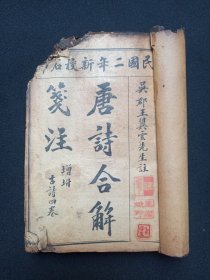 民國二年新
吳郡王翼雲先生註
唐詩合解
箋注
增補
古詩四卷